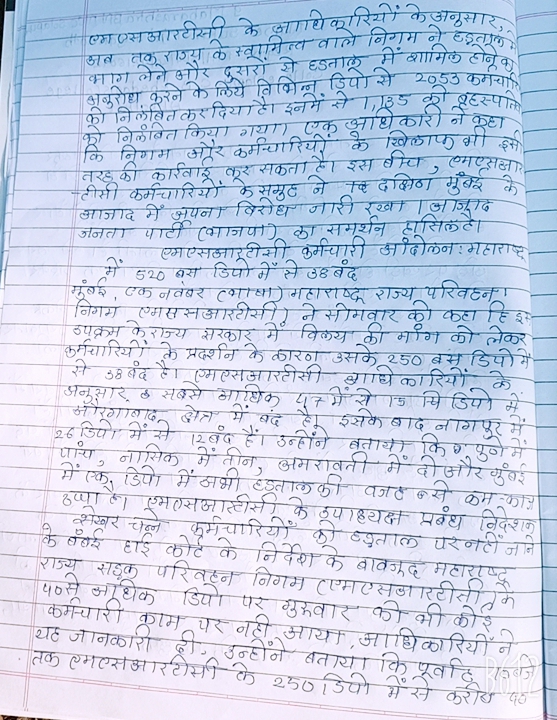 एमएसआरटीसी के अधिकारियों के अनुसार,
अब तक राज्य के स्वामित्व वाले निगम ने हड़ताल में
भाग लेने और दूसरों से हडताल में शामिल होने का
अनुरोध करने के लिये विभिन्न डिपो से 2053 कर्मचारि
को निलंबित कर दिया है। इनमें से 1,135 को बृहस्पतिवा
को निलंबित किया गया। एक अधिकारी ने कहा
कि निगम और कर्मचारियों के खिलाफ भी इसी
तरह की कार्रवाई कर सकता है। इस बीच, एमएसआर
-टीसी कर्मचारियों के समूह ने दक्षिण मुंबई के
आजाद में अपना विरोध जारी रखा
जनता पार्टी (भाजपा) का समर्थन हासिल है।
एमएसआरटीसी कर्मचारी आंदोलन: महाराष्ट्र
में 520 बस डिपो में से 38 बंद
मुंबई, एक नवंबर (भाषा) महाराष्ट्र राज्य परिवहन
निगम (एमएसआरटीसी) ने सोमवार को कहा कि इस
उपक्रम के राज्य सरकार में विलय की मांग को लेकर
कर्मचारियों के प्रदर्शन के कारण उसके 250 बस डिपो में
से 38 बंद है। एमएसआरटीसी अधिकारियों के
अनुसार सबसे अधिक 47 में से 15 डिपो में
औरंगाबाद क्षेत्र में बंद है, इसके बाद नागपुर में
26 डिपो में से 12 बंद है। उन्होंने बताया कि पुणे में
पांच, नासिक में तीन, अमरावती में दो और मुंबई
में एक डिपो में अभी हडताल की वजह से काम-काज
ठप्प है। एमएसआरटीसी के उपाध्यक्ष प्रबंध निदेशक
शेखर चन्ने कर्मचारियों को हडताल पर नहीं जाने
के बंबई हाई कोर्ट के निर्देश के बावजूद महाराष्ट्र
राज्य सड़क परिवहन निगम (एमएसआरटीसी) के
40 से अधिक डिपो पर गुरुवार को भी कोई
कर्मचारी काम पर नहीं आया, अधिकारियों ने
यह जानकारी दी. उन्होंने बताया कि पूर्वाह्न
तक एमएसआरटीसी के 250 डिपो में से करीब 40